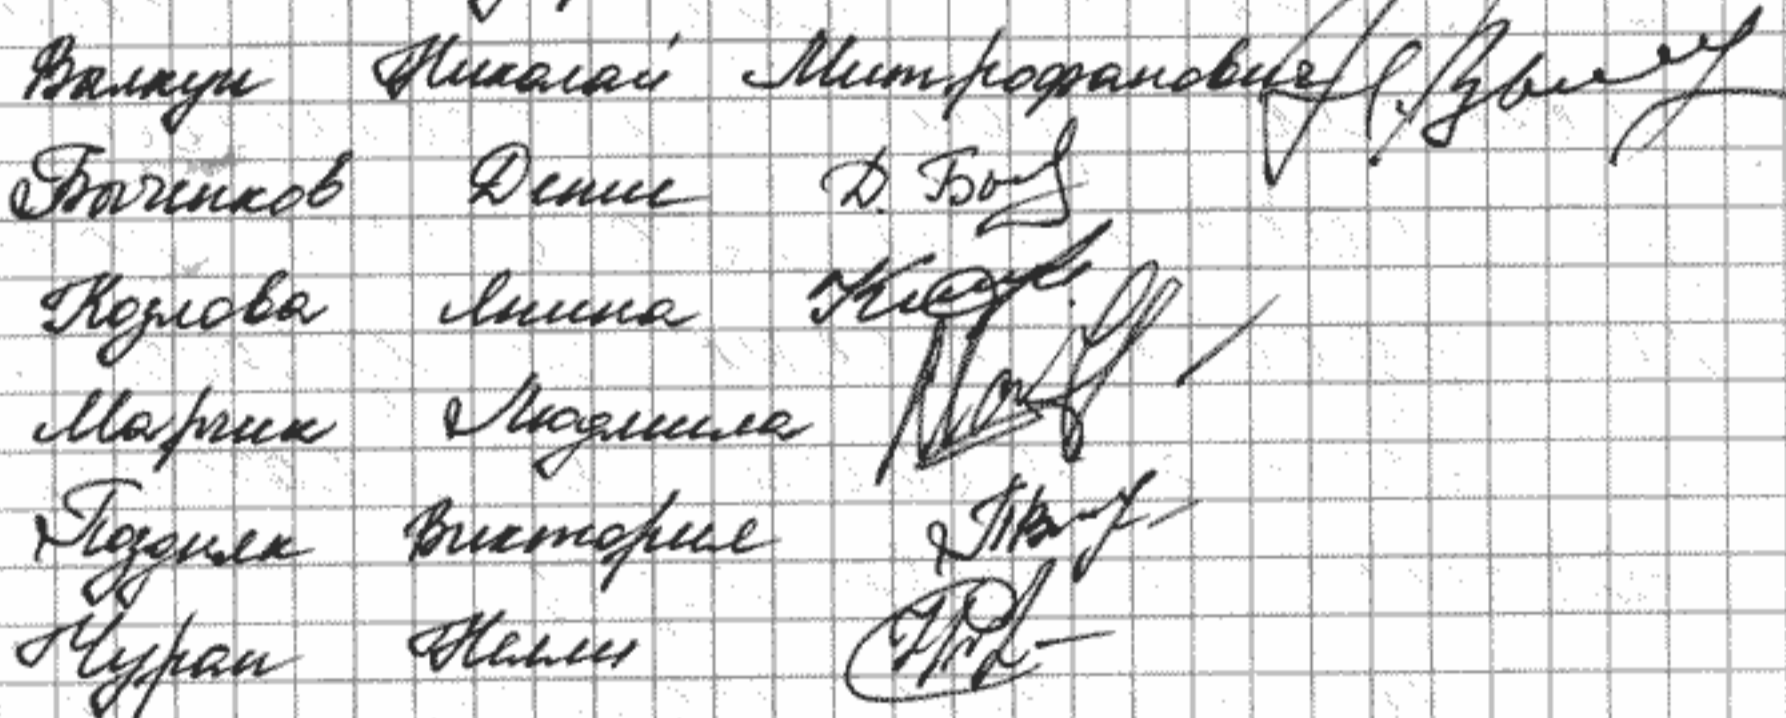 Валкун Николай Митрофанович
Быченков Денис Д. Бы
Козлова Янина
Марчик Людмила
Поздняк Виктория
Чурак Нелли